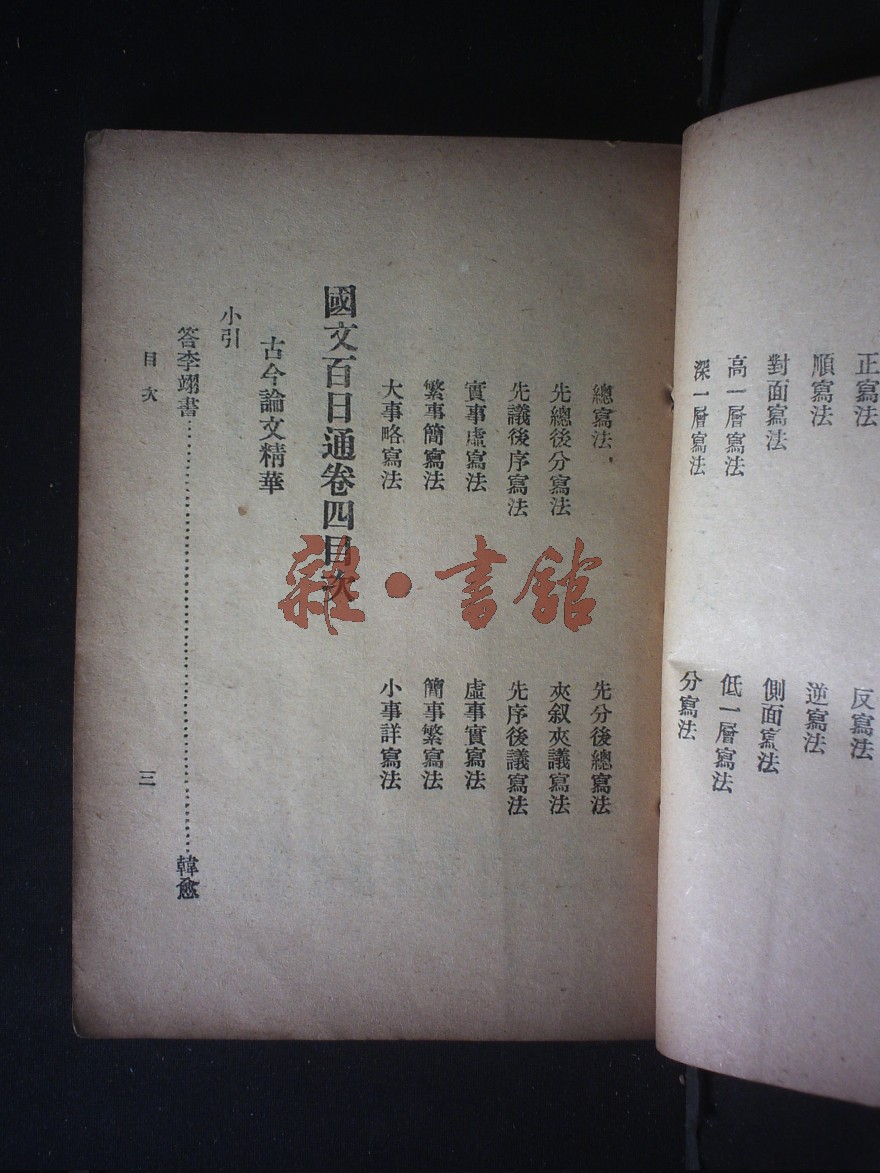 正寫法
反寫法
順寫法
逆寫法
對面寫法
側面寫法
高一層寫法
低一層寫法
深一層寫法
分寫法
總寫法
先分後總寫法
先總後分寫法
夾叙夾議寫法
先議後序寫法
先序後議寫法
實事虛寫法
虛事實寫法
繁事簡寫法
簡事繁寫法
大事略寫法
小事詳寫法
國文百日通卷四目次
古今論文精華
小引
答李翊書……………………………韓愈
目次
三
雜·書館